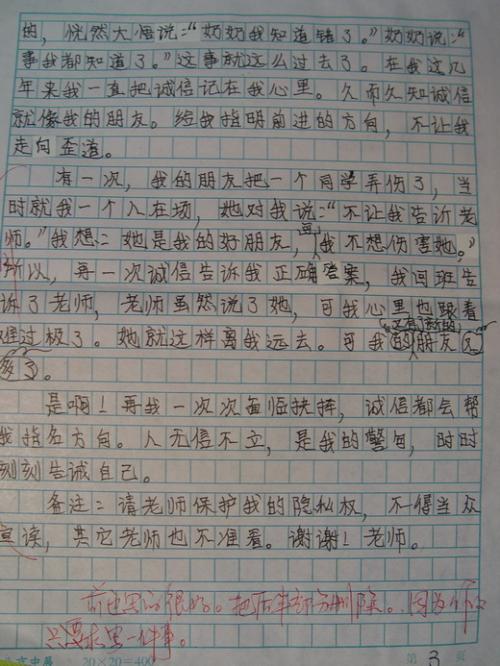 的，恍然大悟说：“奶奶我知道错了。”奶奶说：“
事我都知道了。”这事就这么过去了。在我这几
年来我一直把诚信记在我心里。久而久知诚信
就像我的朋友。给我指明前进的方向，不让我
走向歪道。
有一次，我的朋友把一个同学弄伤了，当
时就我一个人在场，她对我说：“不让我告诉老
师。”我想：她是我的好朋友，我不想伤害她。”
所以，再一次诚信告诉我正确答案，我回班告
诉了老师，老师虽然说了她，可我心里也跟着
难过极了。她就这样离我远去。可我的朋友又
多了。
是啊！再我一次次面临抉择，诚信都会帮
我指名方向。人无信不立，是我的警句，时时
刻刻告诫自己。
备注：请老师保护我的隐私权，不得当众
宣读，其它老师也不准看。谢谢！老师。
前边写的很好。把后半部分删除。因为作文
只要求写一件事。
20×20=400 第 3 页